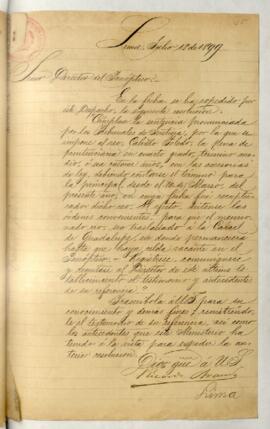 Lima, Julio 12 de 1899
Señor Director del Panóptico.
En la fecha se ha expedido por
este Despacho, la siguiente resolución:
"Cúmplase la sentencia pronunciada
por los Tribunales de Justicia, por la que se
impone al reo, Toledo, la pena de
penitenciaría en cuarto grado, término
ó sea catorce años, con las accesorias
de ley, debiendo contarse el término para
la principal, desde el de Marzo, del
presente año, en cuya fecha fué
dicho reo. Al efecto dictense las
órdenes convenientes, para que el
reo, sea trasladado á la Carcel
de Guadalupe, en donde permanecerá
hasta que haya celda vacante en el
Panóptico. Regístrese, comuníquese
y al Director de este último es-
tablecimiento el testimonio y antecedentes
de su referencia."
Trascríbola á US para su
conocimiento y demas fines; remitiéndo-
le el testimonio de su referencia, así como
los antecedentes que este Ministerio ha
tenido á la vista para expedir la an-
terior resolución.
Dios gue á US.
Lima